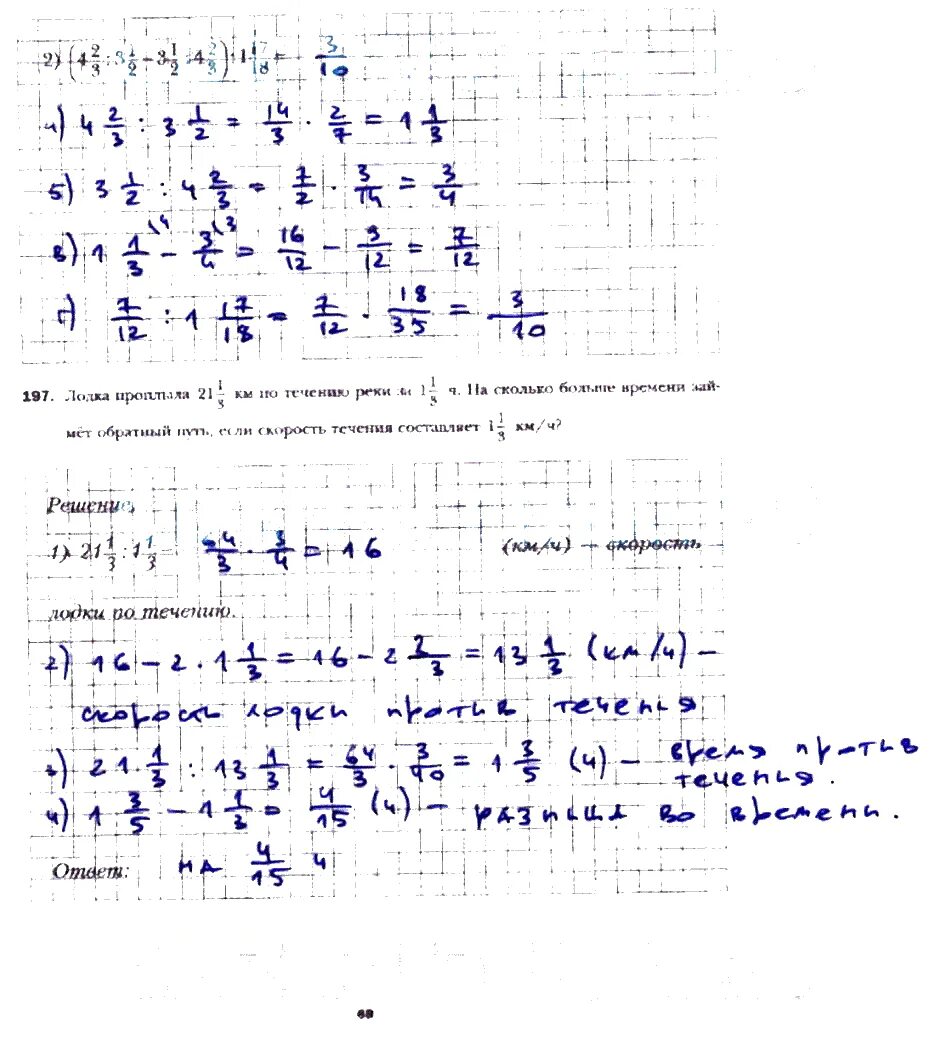 2) (4 2/3 : 3 1/2 − 3 1/2 : 4 2/3) : 1 17/18 = 3/10
а) 4 2/3 : 3 1/2 = 14/3 · 2/7 = 1 1/3
б) 3 1/2 : 4 2/3 = 7/2 · 3/14 = 3/4
в) 1 1/3 \4 − 3/4 \3 = 16/12 − 9/12 = 7/12
г) 7/12 : 1 17/18 = 7/12 · 18/35 = 3/10
197. Лодка проплыла 21 1/3 км по течению реки за 1 1/3 ч. На сколько больше времени зай-
мёт обратный путь, если скорость течения составляет 1 1/3 км/ч?
Решение.
1) 21 1/3 : 1 1/3 64/3 · 3/4 = 16 (км/ч) — скорость
лодки по течению.
2) 16 − 2 · 1 1/3 = 16 − 2 2/3 = 13 1/3 (км/ч) −
скорость лодки против теченья
3) 21 · 1/3 : 13 1/3 = 64/3 · 3/40 = 1 3/5 (ч) − время против
теченья.
4) 1 3/5 − 1 1/3 = 4/15 (ч) − разница во времени.
Ответ: на 4/15 ч
68